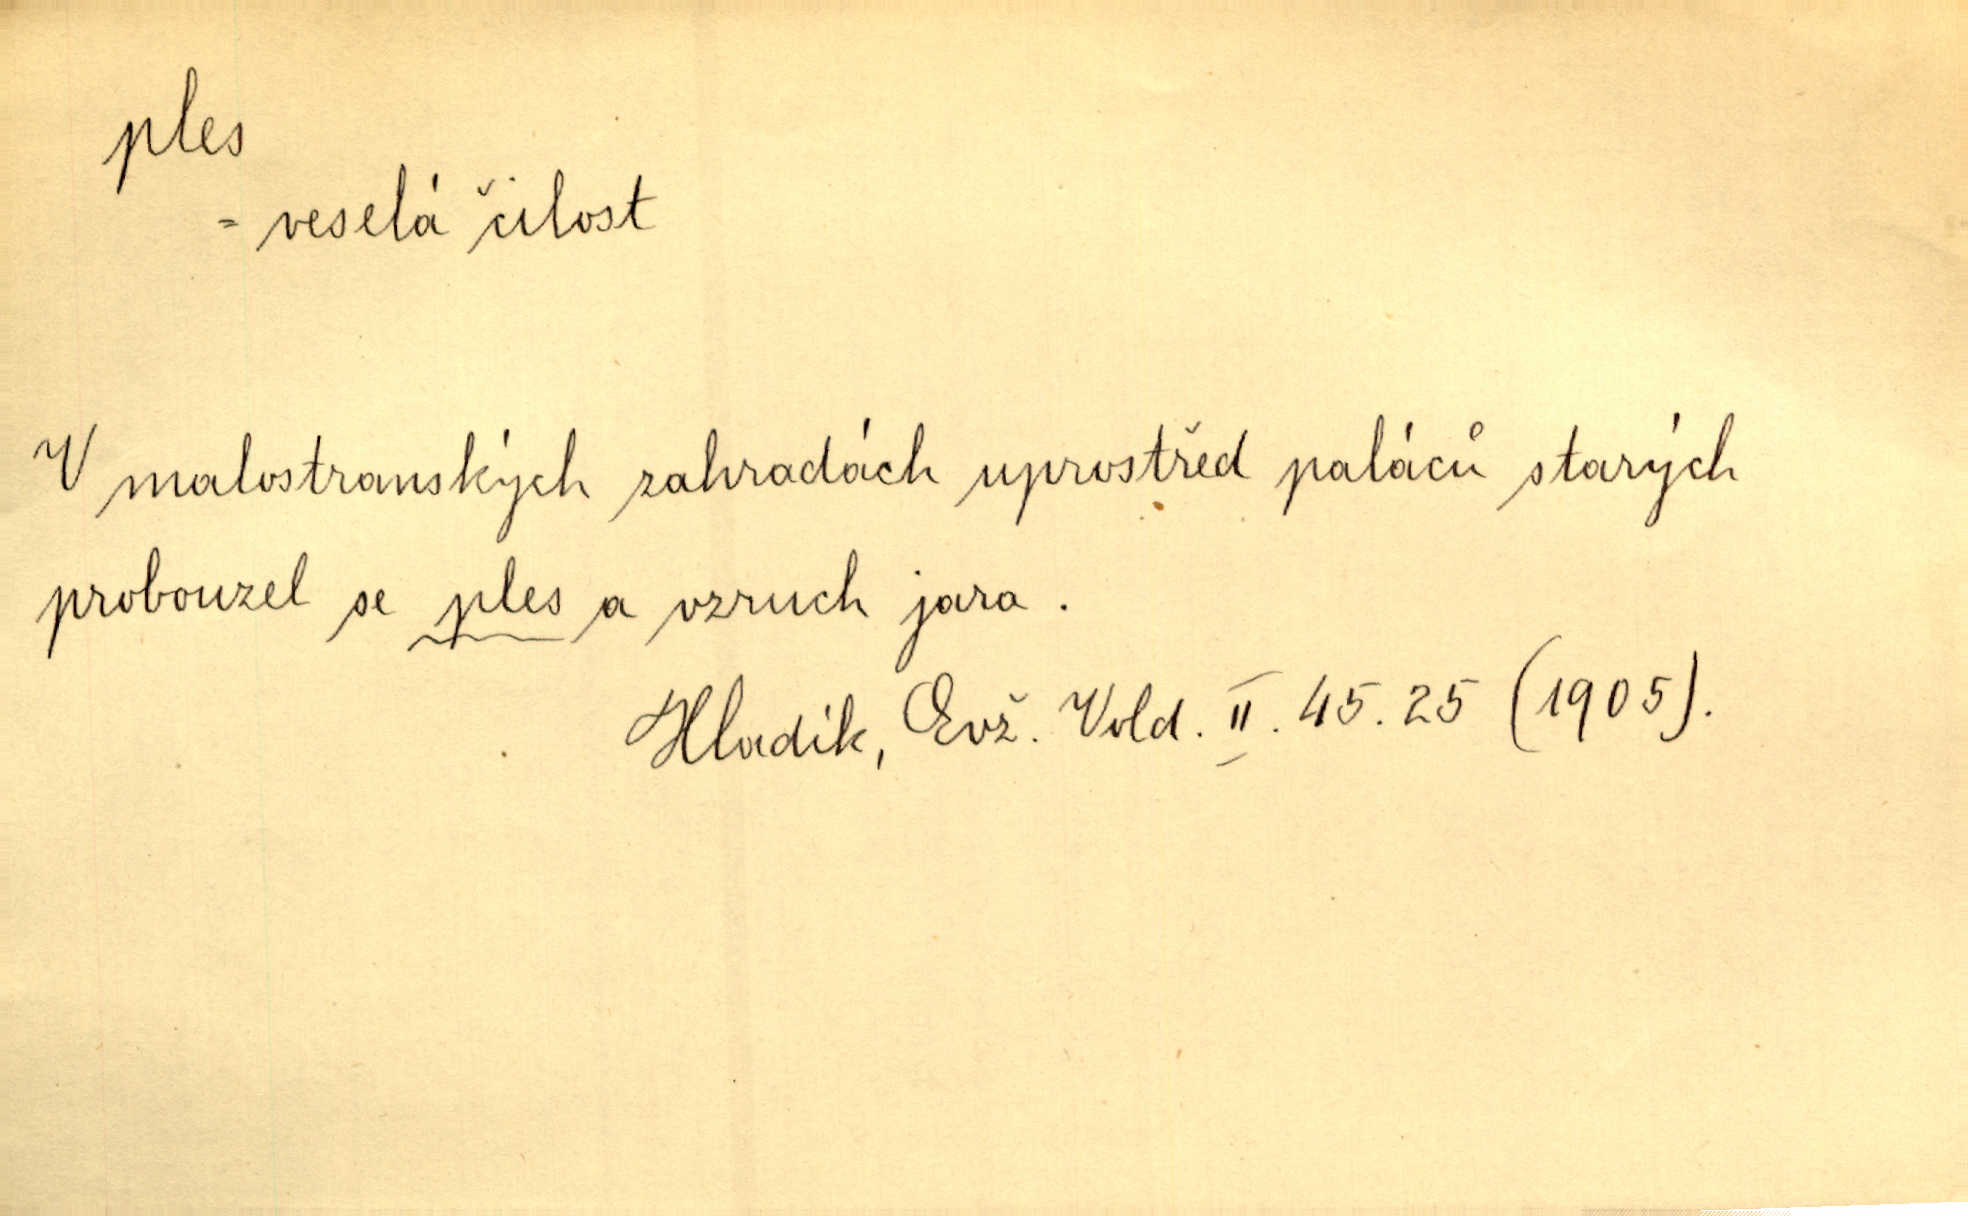 ples
= veselá čilost
V malostranských zahradách uprostřed paláců starých
probouzel se ples a vzruch jara.
Hladík, Evž. Vold. II. 45. 25 (1905).